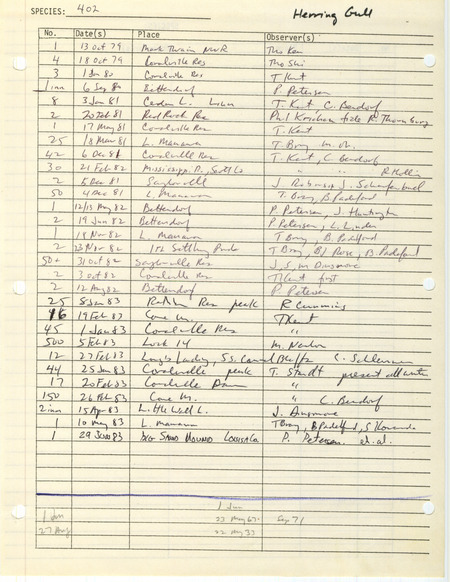 SPECIES: 402 Herring Gull
No. Date(s) Place Observer(s)
1 13 Oct 79 Mark Twain NWR Tho Ken
4 18 Oct 79 Coralville Res Tho Shi
3 1 Jan 80 Coralville Res T Kent
1 imm 6 Sep 80 Bettendorf P. Petersen
8 3 Jan 81 Cedar L. T. Kent C. Bendorf
2 20 Feb 81 Red Rock Res Paul
1 17 May 81 Coralville Res T. Kent
25 18 Mar 81 L. Manawa T. Bray
42 6 Dec 81 Coralville Res T. Kent, C. Bendorf
30 21 Feb 82 Mississippi R., Scott Co " " R Hollis
2 5 Dec 81 Saylorville J. Robinson J. Schaufenbuel
50 4 Dec 81 L. Manawa T. Bray, B. Padelford
1 12/13 May 82 Bettendorf P. Petersen, J. Huntington
2 19 Jun 82 Bettendorf P Petersen, L. Linden
1 18 Nov 82 L. Manawa T Bray, B. Padelford
2 23 Nov 82 Settling Ponds T Bray, B. Padelford
50+ 31 Oct 82 Saylorville Res J, S, M Dinsmore
2 3 Oct 82 Coralville Res T Kent first
2 12 Aug 82 Bettendorf P Petersen
25 8 Jan 83 Res peak R Cummins
16 19 Feb 83 Cone M. T Kent
45 1 Jan 83 Coralville Res "
500 5 Feb 83 Lock 14 M. Newlon
12 27 Feb 83 Long's Landing, S.S. Council Bluffs
44 25 Jan 83 Coralville peak T. Staudt present all winter
17 20 Feb 83 Coralville Dam "
150 26 Feb 83 Cone M. " C. Bendorf
2 imm 15 Apr 83 L. J. Dinsmore
1 10 May 83 L. Manawa T Bray, B Padelford,
1 29 Jun 83 Big Sand Mound Louisa Co P. Petersen et al.
1 Jan 1 Jun
23 May 67. Sep 71
27 Aug 22 May 33